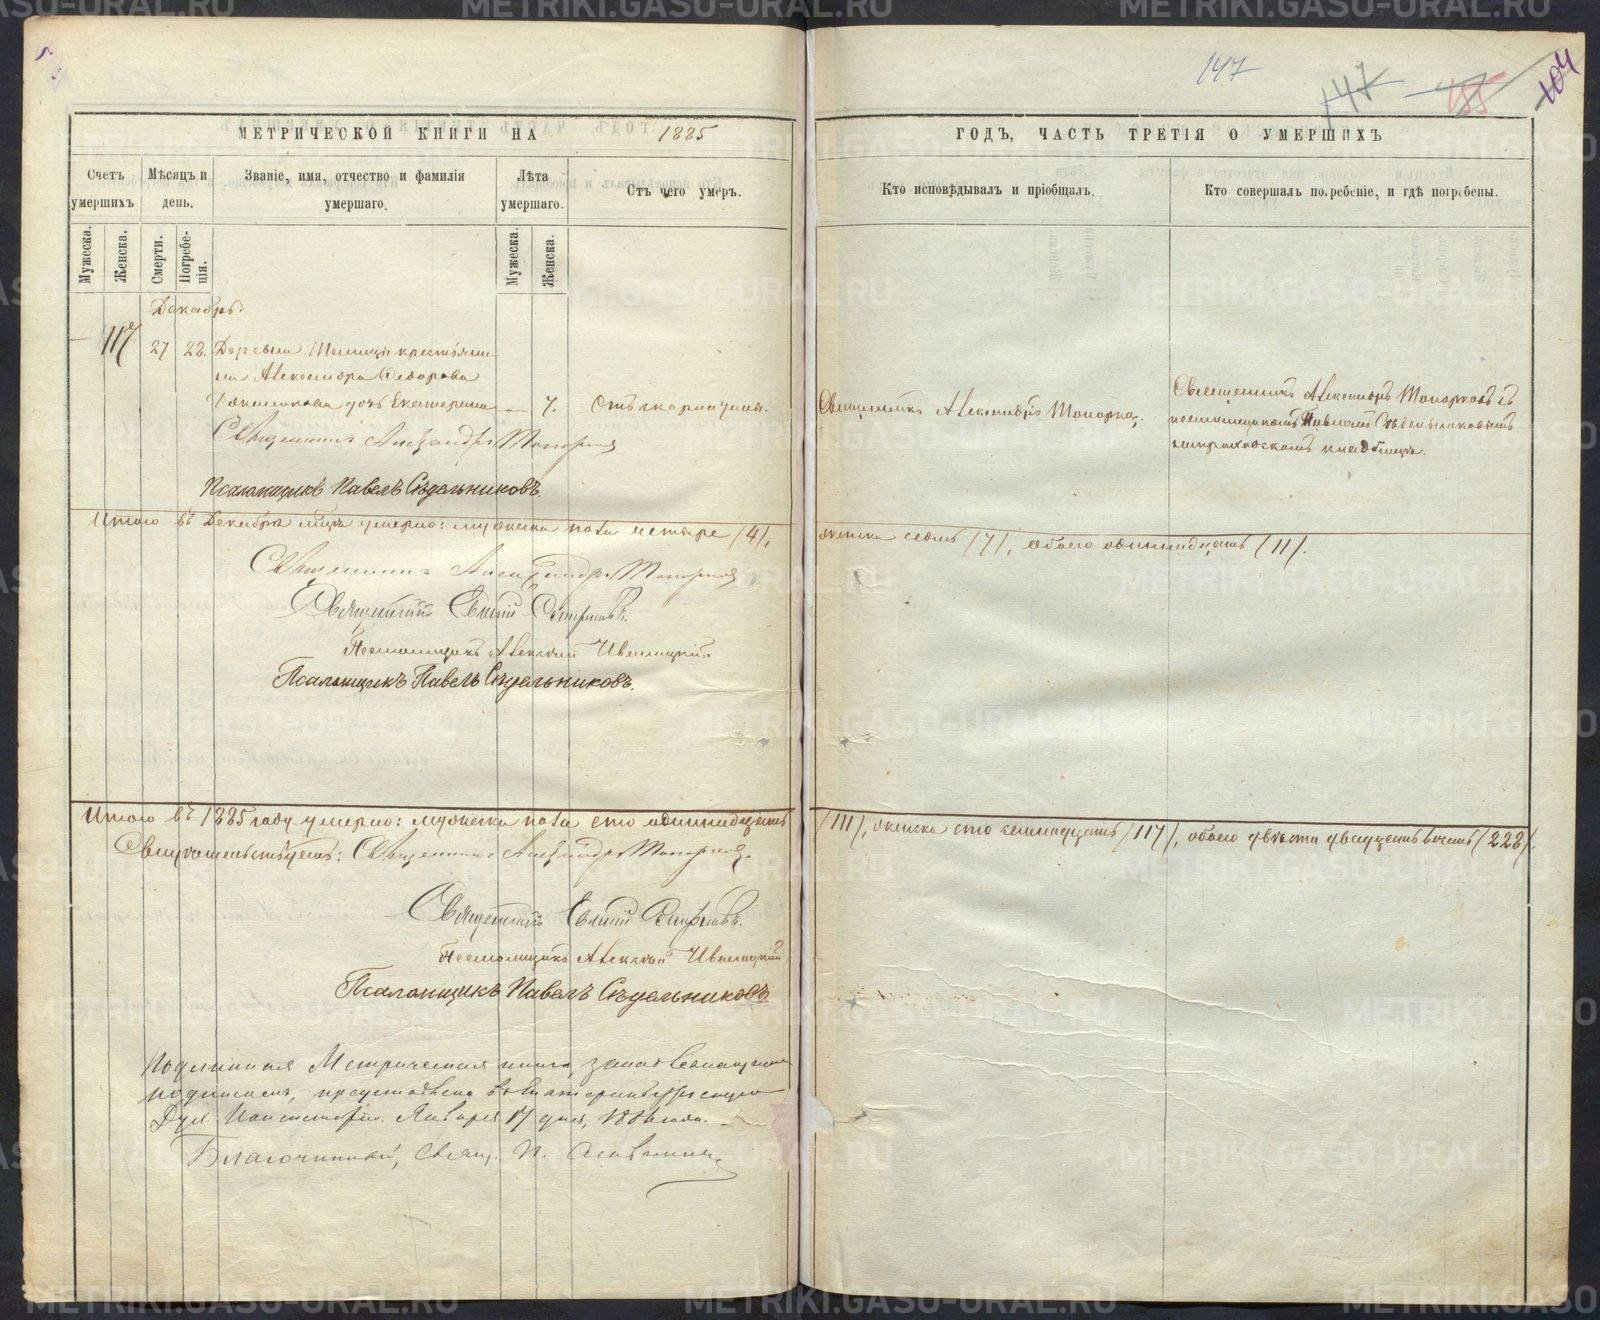 147
147
185
104
МЕТРИЧЕСКОЙ КНИГИ НА 1885
ГОДЪ, ЧАСТЬ ТРЕТІЯ О УМЕРШИХЪ
Счетъ умершихъ
Мѣсяцъ и день.
Званіе, имя, отчество и фамилія умершаго.
Лѣта умершаго.
Отъ чего умеръ.
Кто исповѣдывалъ и пріобщалъ.
Кто совершалъ погребеніе, и гдѣ погребены.
Мужеска.
Женска.
Смерти.
Погребенія.
Мужеска.
Женска.
Декабрь.
— 117 27 28. Деревни крестьяни-
на Александра Ѳедорова
дочь Екатерина — 7. Отъ скарлатины.
Священникъ Александръ Топорковъ
Священникъ Александръ Топорковъ съ
псаломщикомъ Павломъ Сѣдельниковымъ
кладбищѣ.
Священникъ Александръ Топорковъ
Псаломщикъ Павелъ Сѣдельниковъ.
Итого въ Декабрѣ м-цѣ умерло: мужеска пола четыре /4/,
женска семь /7/, обоего одиннадцать /11/.
Священникъ Александръ Топорковъ
Священникъ Евгеній
Псаломщикъ Алексѣй Ивановскій
Псаломщикъ Павелъ Сѣдельниковъ.
Итого въ 1885 году умерло: мужеска пола сто одиннадцать
/111/, женска сто семнадцать /117/, обоего двѣсти двадцать восемь /228/.
Свидѣтельствуемъ: Священникъ Александръ Топорковъ.
Священникъ Евгеній
Псаломщикъ Алексѣй
Псаломщикъ Павелъ Сѣдельниковъ
Подлинная Метрическая книга, за
подписомъ, представлена въ Екатеринбургскую
Дух. Консисторію. Января 17 дня, 1886 года.
Благочинный, Свящ. П.
METRIKI.GASO-URAL.RU